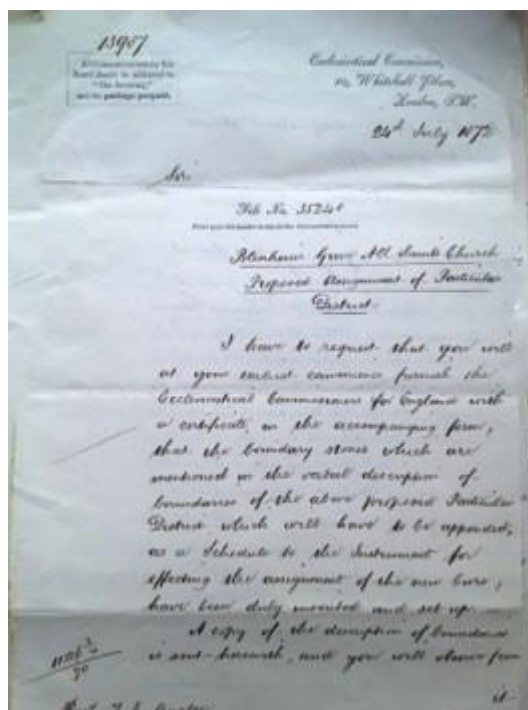 13907
All communications
should be addressed to
"The Secretary,"
and the postage prepaid.
Ecclesiastical Commission,
10, Whitehall Place,
London, S.W.
24th July 1872
Sir
File No. 35240
Blenheim Grove All Saints Church
Proposed Assignment of Particular
District.
I have to request that you will
at your earliest convenience furnish the
Ecclesiastical Commissioners for England with
a certificate, in the accompanying form,
that the boundary stones which are
mentioned in the verbal description of
boundaries of the above proposed Particular
District which will have to be appended,
as a Schedule to the Instrument for
effecting the assignment of the new Cure,
have been duly inserted and set up.
A copy of the description of boundaries
is sent herewith, and you will observe from
it